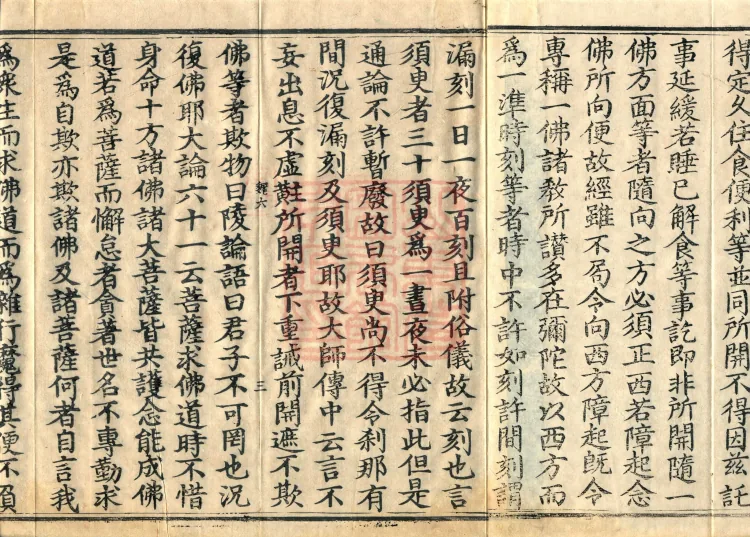 得定久住食便利等並同所開不得因茲託
事延緩若睡已解食等事訖即非所開隨一
佛方面等者隨向之方必須正西若障起念
佛所向便故經雖不局令向西方障起既令
專稱一佛諸教所讃多在彌陀故以西方而
為一準時刻等者時中不許如刻許間刻謂
漏刻一日一夜百刻且附俗儀故云刻也言
須臾者三十須臾為一晝夜未必指此但是
通論不許暫廢故曰須臾尚不得令刹那有
間況復漏刻及須臾耶故大師傳中云言不
妄出息不虛黈所開者下重誡前開遮不欺
輕六 三
佛等者欺物曰陵論語曰君子不可罔也況
復佛耶大論六十一云菩薩求佛道時不惜
身命十方諸佛諸大菩薩皆共護念能成佛
道若為菩薩而懈怠者貪著世名不專勤求
是為自欺亦欺諸佛及諸菩薩何者自言我
為衆生而求佛道而為雜行魔得其便不負